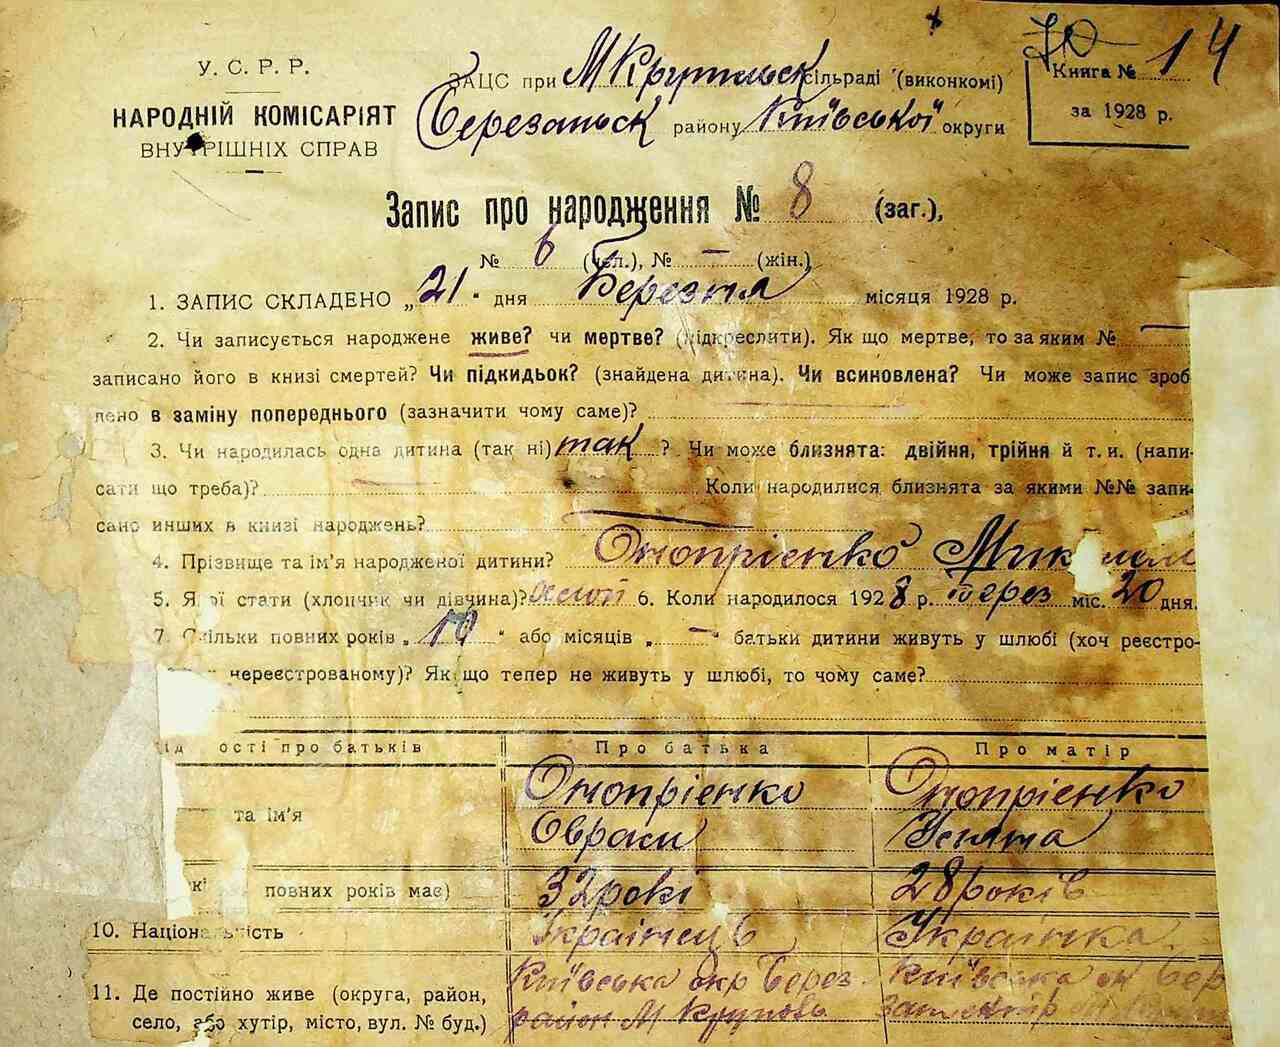 У. С. Р. Р.
НАРОДНІЙ КОМІСАРІЯТ
ВНУТРІШНІХ СПРАВ
ЗАЦС при М Крупольск сільраді (виконкомі)
Березанськ району Київської округи
70 Книга № 14
за 1928 р.
Запис про народження № 8 (заг.),
№ 6 (чол.), № — (жін.)
1. ЗАПИС СКЛАДЕНО „21“ дня Березня місяця 1928 р.
2. Чи записується народжене живе? чи мертве? (підкреслити). Як що мертве, то за яким № —
записано його в книзі смертей? Чи підкидьок? (знайдена дитина). Чи всиновлена? Чи може запис зроб-
лено в заміну попереднього (зазначити чому саме)?
3. Чи народилась одна дитина (так ні) так ? Чи може близнята: двійня, трійня й т. и. (напи-
сати що треба)? Коли народилися близнята за якими №№ запи-
сано инших в книзі народжень?
4. Прізвище та ім'я народженої дитини? Онопрієнко
5. Якої стати (хлопчик чи дівчина)? 6. Коли народилося 1928 р. Берез міс. 20 дня.
7. Скільки повних років „10“ або місяців „—“ батьки дитини живуть у шлюбі (хоч реєстро-
нереєстрованому)? Як що тепер не живуть у шлюбі, то чому саме?
ості про батьків Про батька Про матір
та ім'я Онопрієнко Онопрієнко
Оврам Уляна
повних років має) 32 рокі 28 років
10. Національність Українець Українка
11. Де постійно живе (округа, район, Київська окр Берез Київська ок Бер
село, або хутір, місто, вул. № буд.) район М Круполь